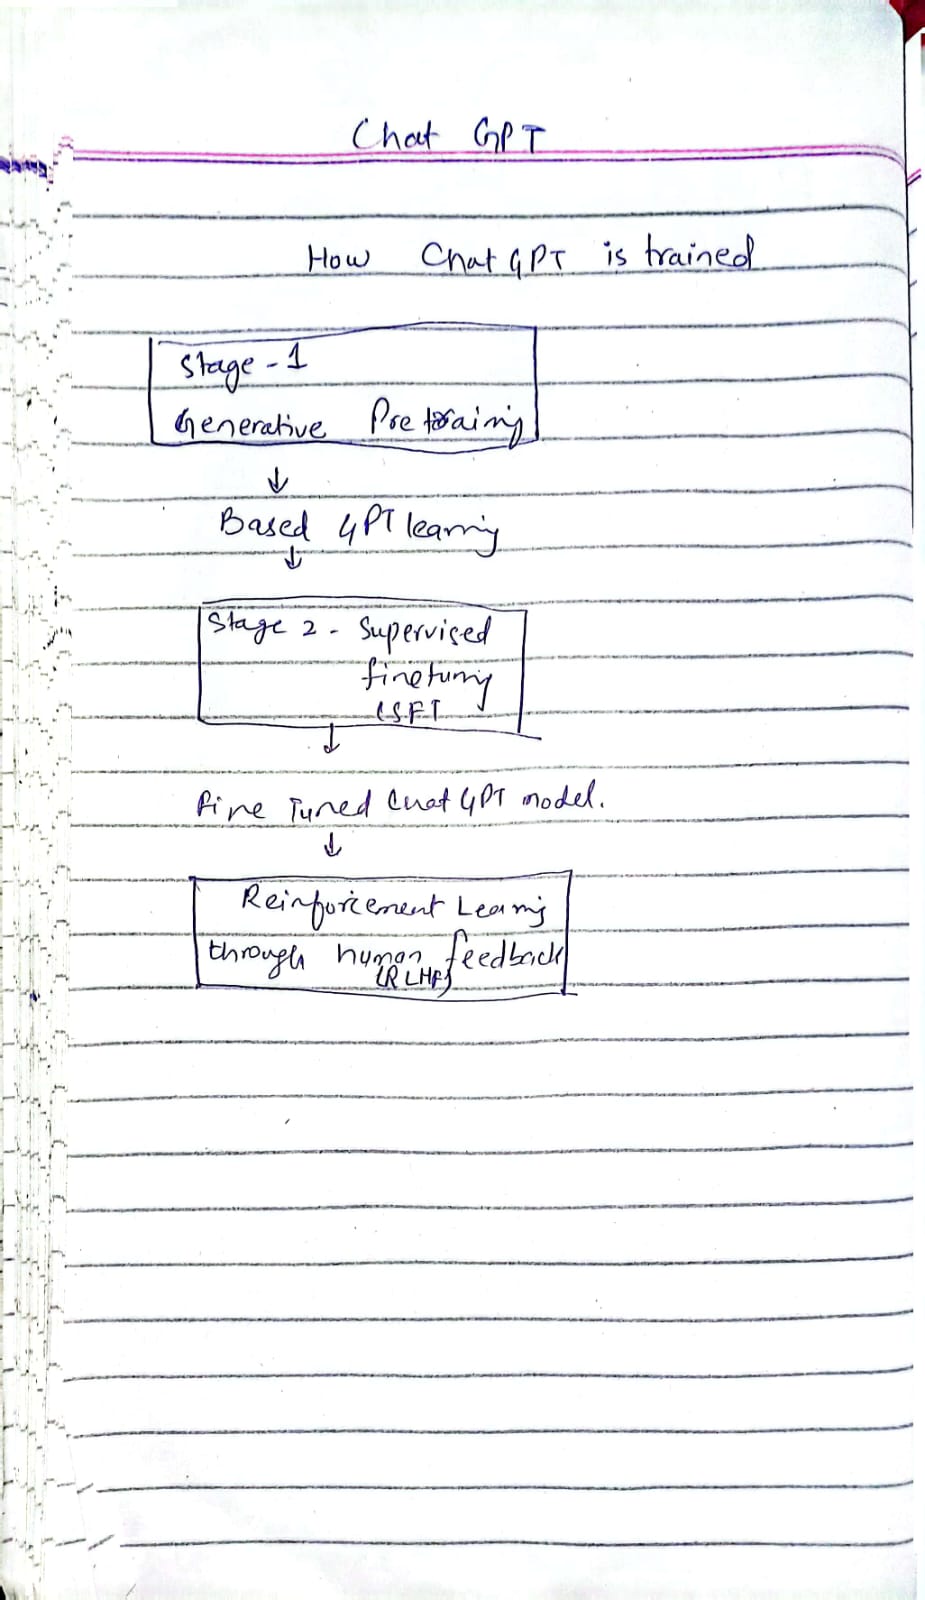 Chat GPT
How Chat GPT is trained
Stage - 1
Generative Pretraining
Based GPT learning
Stage 2 - Supervised
finetuning
(SFT
fine Tuned Chat GPT model.
Reinforcement Learning
through human feedback
(RLHF)